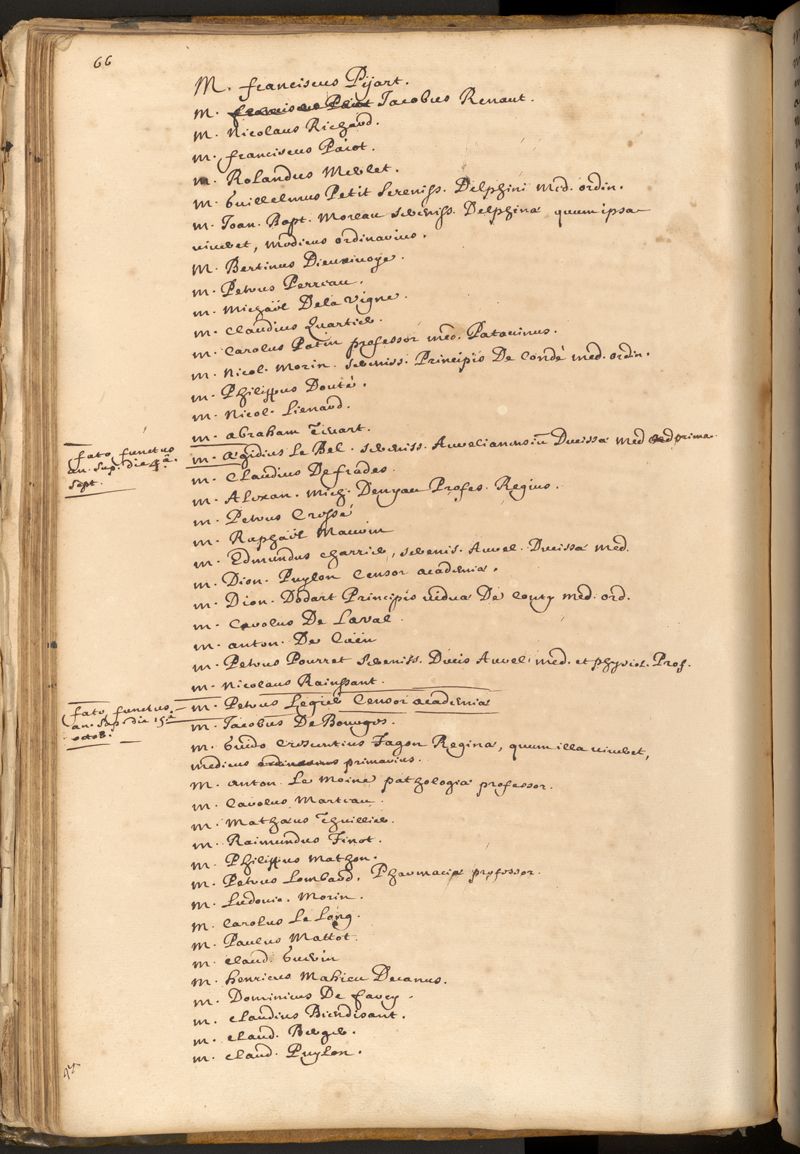 66
M. franciscus Pijart.
M. Jacobus Renaut.
M. Nicolaus Richard.
M. franciscus Parot.
M. Rolandus Merlet.
M. Guillelmus Petit Sereniss. Delphini Med. ordin.
M. Joan. Bapt. Moreau Sereniss. Delphinæ quum ipsa
viveret, medicus ordinarius.
M. Bertinus Dieuxivoye.
M. Petrus Perreau.
M. Michaël De la Vigne.
M. Claudius Quartier.
M. Carolus Patin professor med. Patavinus.
M. Nicol. Morin. Sereniss. Principis De Condé med. ordin.
M. Philippus Douté.
M. Nicol. Lienard.
M. abraham Tivart.
fato functus
an. Sup. die 4ª.
Sept.
M. Ægidius Le Bel. Sereniss. Aurelianensiũ Ducissæ med prima
M. Claudius Defrades.
M. Alexan. Mich. Denyau Profes. Regius.
M. Petrus Cressé
M. Raphaël Mauvin
M. Edmundus Charrier, Serenis. Aurel. Ducissæ med.
M. Dion. Puylon Censor academiæ.
M. Dion. Dodart Principis viduæ De Conty med. ord.
M. Carolus De Laval
M. anton. De Caën
M. Petrus Pourret Sereniss. Ducis Aurel. med. et physiol. Prof.
M. Nicolaus Rainssant.
fato functus
an. Sup. die 15ª
octob.
M. Petrus Legier Censor academiæ
M. Jacobus De Bourges.
M. Guido Crescentius Fagon Reginæ, quum illa viveret,
medicus primarius.
M. anton. Le Moine pathologiæ professor.
M. Carolus Marteau.
M. Mathæus Thuillier.
M. Raimundus Finot.
M. Philippus Mathon.
M. Petrus Lombard. Pharmaciæ professor.
M. Ludovic. Morin.
M. Carolus Le Long.
M. Paulus Mattot.
M. claud. Guerin
M. henricus Mahieu Decanus.
M. Dominicus De farcy.
M. claudius Biendisant.
M. claud. Berger.
M. claud. Puylon.